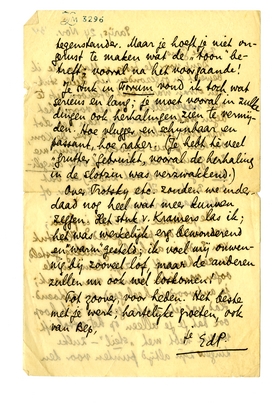 M 8296
tegenstander. Maar je hoeft je niet on-
gerust te maken wat de "toon" be-
treft, vooral na het voorgaande!
Je stuk in Forum vond ik toch wat
serieus en lang; je moet vooral in zulke
dingen ook herhalingen zien te vermij-
den. Hoe vlugger en schijnbaar en
passant, hoe raker. (Je hebt te veel
gebruikt, vooral de herhaling
in de slotzin was verzwakkend.)
Over Trotsky etc. zouden we inder-
daad nog heel wat meer kunnen
zeggen. Het stuk v. Kramers las ik;
het was werkelijk erg bewonderend
en warm gesteld; ik voel mij onwen-
nig bij zooveel lof, maar de anderen
zullen nu ook wel loskomen!
Tot zoover voor heden. Het beste
met je werk, hartelijke groeten, ook
van Bep,
je EdP.